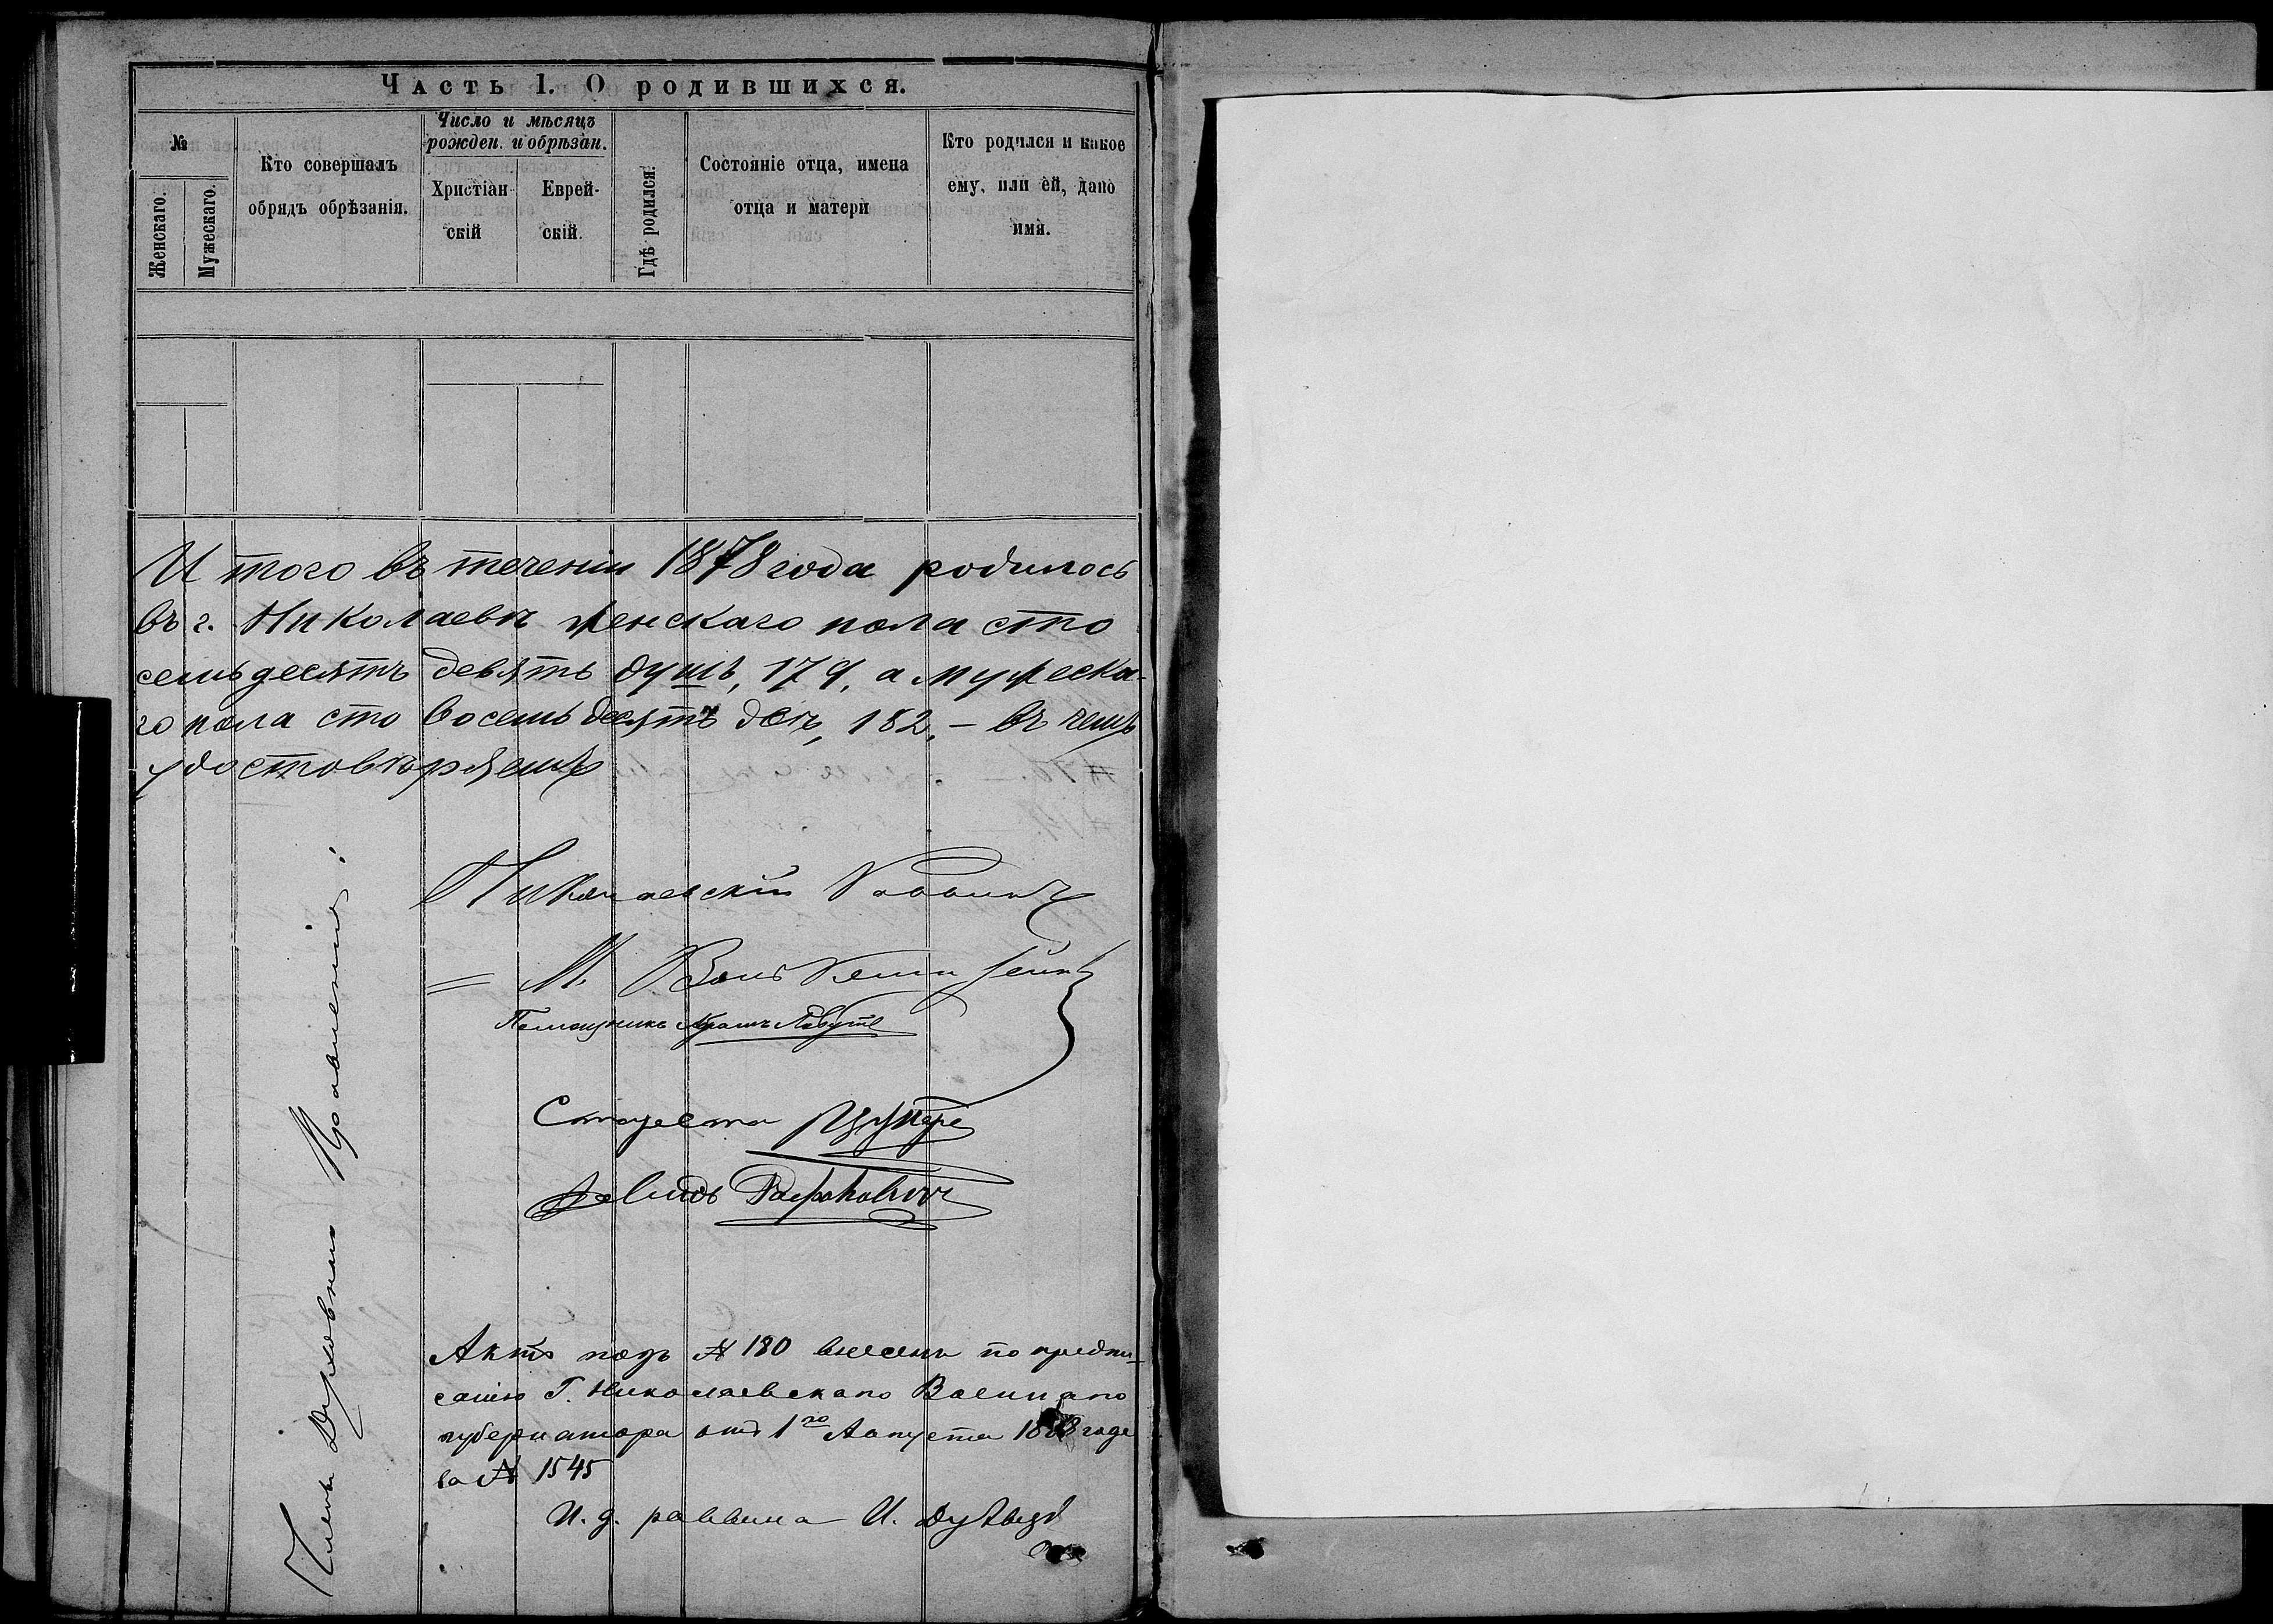 Часть 1. О родившихся.
№
Женскаго.
Мужескаго.
Кто совершалъ
обрядъ обрѣзанія.
Число и мѣсяцъ
рожден. и обрѣзан.
Христіан-
скій
Еврей-
скій.
Гдѣ родился.
Состояніе отца, имена
отца и матери
Кто родился и какое
ему, или ей, дано
имя.
И того въ теченіи 1878 года родилось
въ г. Николаевѣ женскаго пола сто
семьдесятъ девять душъ, 179, а мужеска-
го пола сто восемьдесятъ двѣ, 182, – въ чемъ
удостовѣряемъ
Николаевскій Раввинъ
М.
Помощникъ
Староста
Давидъ Рафаловичъ
Члены Духовнаго Правленія:
Актъ подъ № 180 внесенъ по предпи-
санію Г. Николаевскаго Военнаго
губернатора отъ 1го Августа 1888 года
за № 1545
И. д. раввина И.